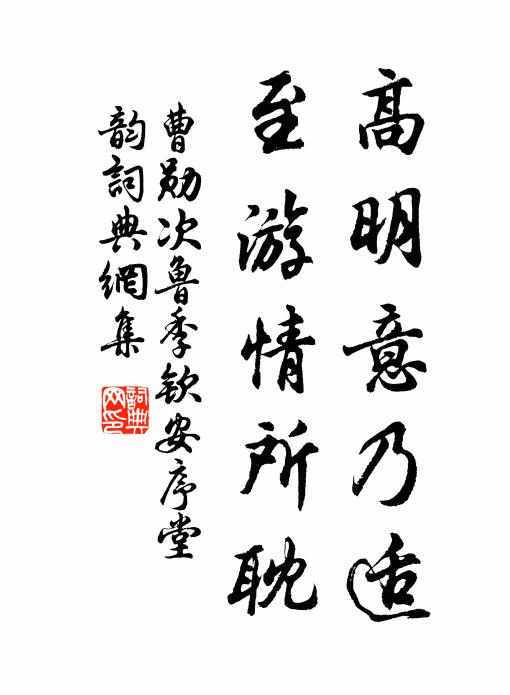 高明意乃适
至游情所耽
曹勋次魯季钦安序堂
韵詞典網集
詞典
网印